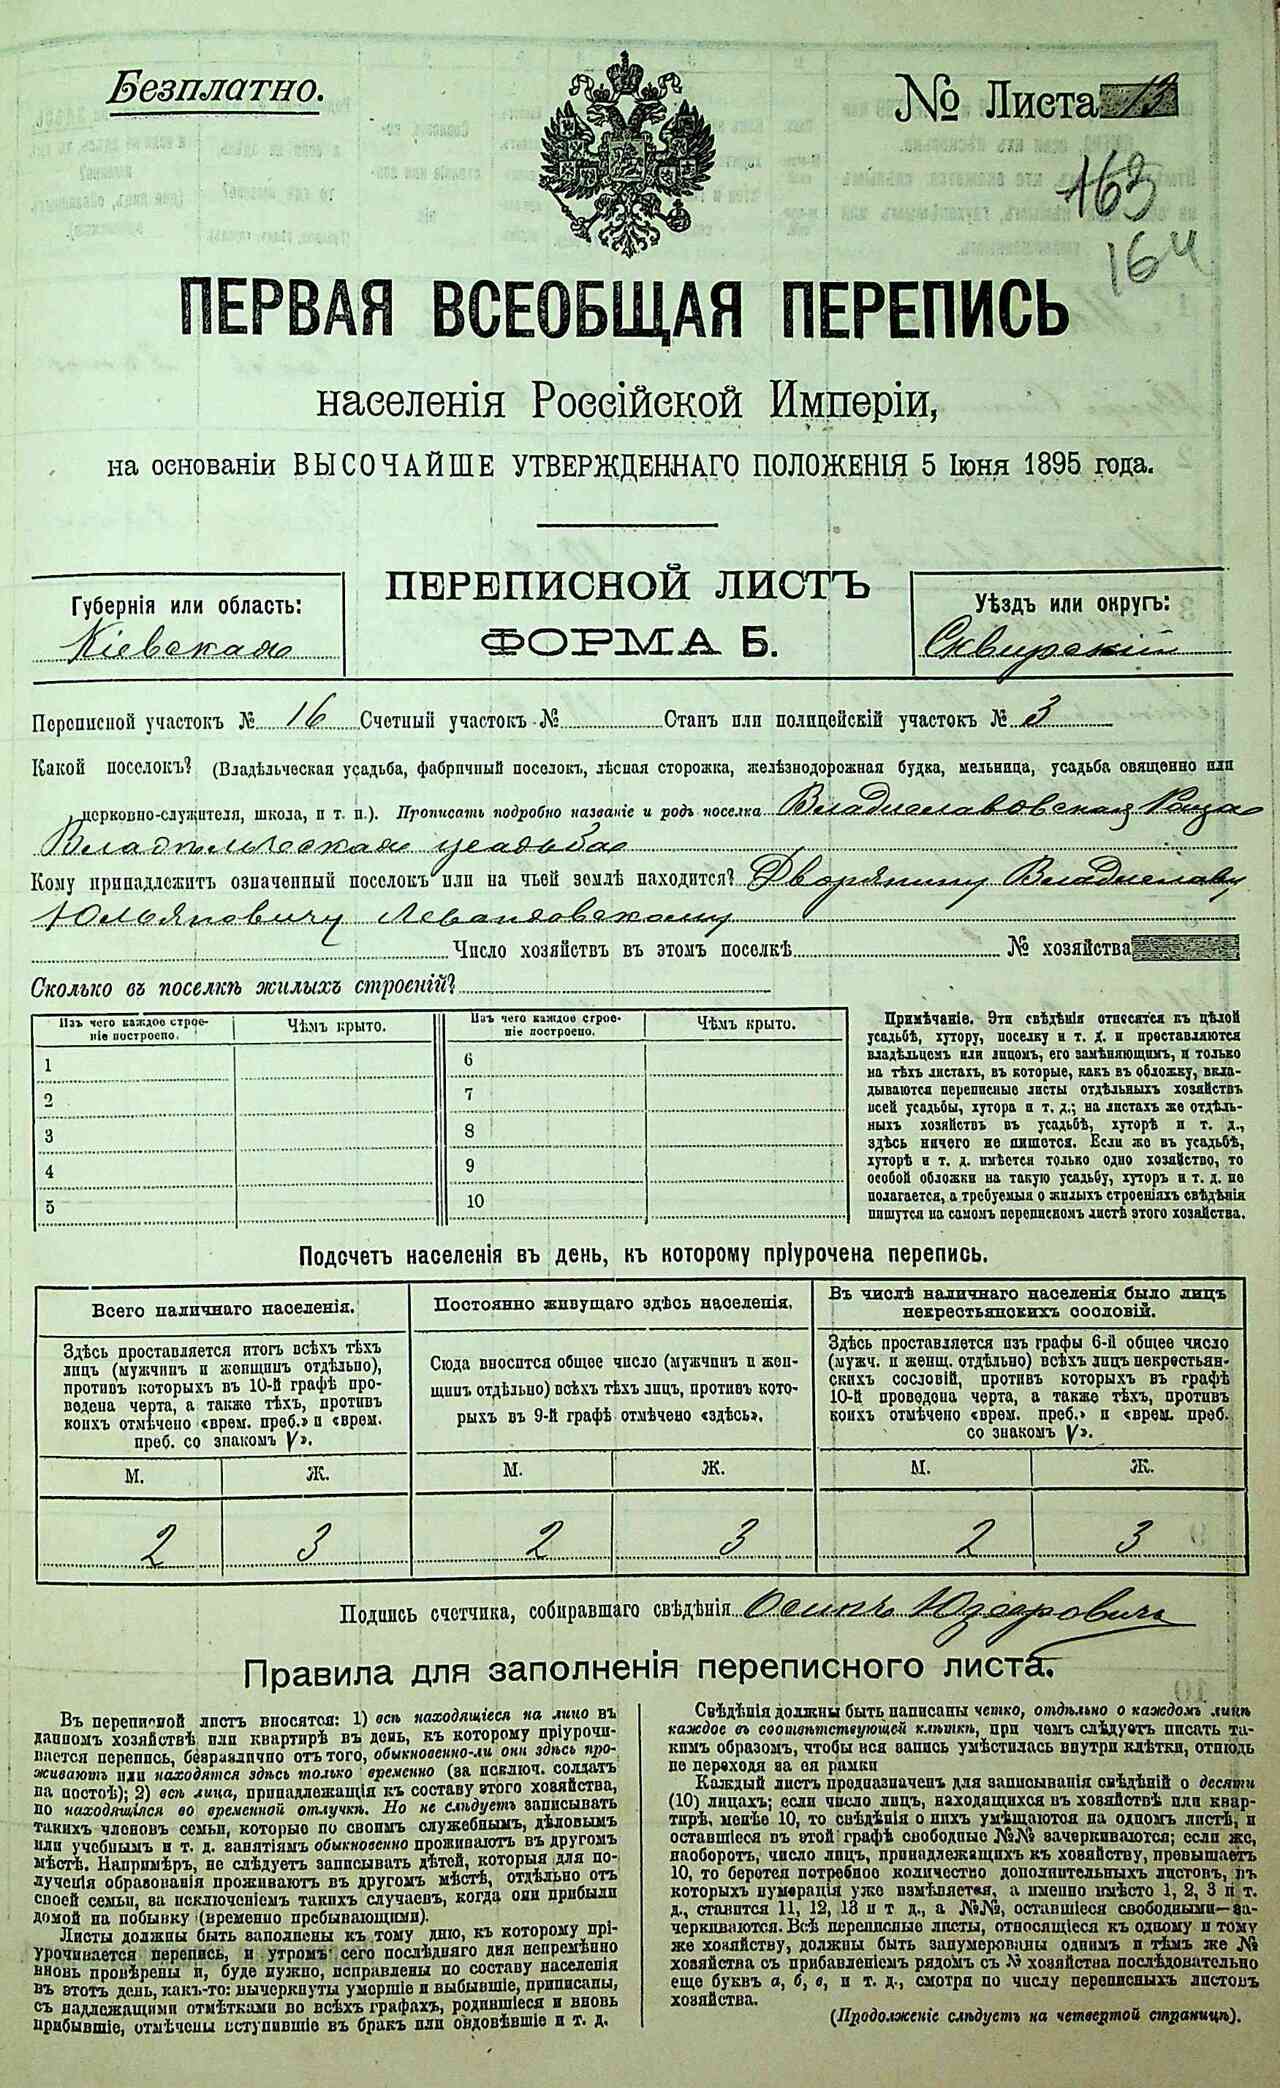 Безплатно.
№ Листа 13
163
164
ПЕРВАЯ ВСЕОБЩАЯ ПЕРЕПИСЬ
населенія Россійской Имперіи,
на основаніи ВЫСОЧАЙШЕ УТВЕРЖДЕННАГО ПОЛОЖЕНІЯ 5 Іюня 1895 года.
ПЕРЕПИСНОЙ ЛИСТЪ
ФОРМА Б.
Губернія или область:
Кіевская
Уѣздъ или округъ:
Сквирскій
Переписной участокъ № 16 Счетный участокъ № Станъ или полицейскій участокъ № 3
Какой поселокъ? (Владѣльческая усадьба, фабричный поселокъ, лѣсная сторожка, желѣзнодорожная будка, мельница, усадьба овященно или
церковно-служителя, школа, и т. п.). Прописать подробно названіе и родъ поселка Владиславовская Роща
Владѣльческая усадьба
Кому принадлежитъ означенный поселокъ или на чьей землѣ находится? Дворянину Владиславу
Юльяновичу Левандовскому
Число хозяйствъ въ этомъ поселкѣ № хозяйства
Сколько въ поселкѣ жилыхъ строеній?
Изъ чего каждое строе-
ніе построено.
Чѣмъ крыто.
Изъ чего каждое строе-
ніе построено.
Чѣмъ крыто.
1
2
3
4
5
6
7
8
9
10
Примѣчаніе. Эти свѣдѣнія относятся къ цѣлой
усадьбѣ, хутору, поселку и т. д. и проставляются
владѣльцемъ или лицомъ, его замѣняющимъ, и только
на тѣхъ листахъ, въ которые, какъ въ обложку, вкла-
дываются переписные листы отдѣльныхъ хозяйствъ
всей усадьбы, хутора и т. д.; на листахъ же отдѣль-
ныхъ хозяйствъ въ усадьбѣ, хуторѣ и т. д.,
здѣсь ничего не пишется. Если же въ усадьбѣ,
хуторѣ и т. д. имѣется только одно хозяйство, то
особой обложки на такую усадьбу, хуторъ и т. д. не
полагается, а требуемыя о жилыхъ строеніяхъ свѣдѣнія
пишутся на самомъ переписномъ листѣ этого хозяйства.
Подсчетъ населенія въ день, къ которому пріурочена перепись.
Всего наличнаго населенія.
Здѣсь проставляется итогъ всѣхъ тѣхъ
лицъ (мужчинъ и женщинъ отдѣльно),
противъ которыхъ въ 10-й графѣ про-
ведена черта, а также тѣхъ, противъ
коихъ отмѣчено «врем. преб.» и «врем.
преб. со знакомъ V».
М. Ж.
2 3
Постоянно живущаго здѣсь населенія.
Сюда вносится общее число (мужчинъ и жен-
щинъ отдѣльно) всѣхъ тѣхъ лицъ, противъ кото-
рыхъ въ 9-й графѣ отмѣчено «здѣсь».
М. Ж.
2 3
Въ числѣ наличнаго населенія было лицъ
некрестьянскихъ сословій.
Здѣсь проставляется изъ графы 6-й общее число
(мужч. и женщ. отдѣльно) всѣхъ лицъ некрестьян-
скихъ сословій, противъ которыхъ въ графѣ
10-й проведена черта, а также тѣхъ, противъ
коихъ отмѣчено «врем. преб.» и «врем. преб.
со знакомъ V».
М. Ж.
2 3
Подпись счетчика, собиравшаго свѣдѣнія Осипъ
Правила для заполненія переписного листа.
Въ переписной листъ вносятся: 1) всѣ находящіеся на лицо въ
данномъ хозяйствѣ или квартирѣ въ день, къ которому пріурочи-
вается перепись, безразлично отъ того, обыкновенно-ли они здѣсь про-
живаютъ или находятся здѣсь только временно (за исключ. солдатъ
на постоѣ); 2) всѣ лица, принадлежащія къ составу этого хозяйства,
но находящіяся во временной отлучкѣ. Но не слѣдуетъ записывать
такихъ членовъ семьи, которые по своимъ служебнымъ, дѣловымъ
или учебнымъ и т. д. занятіямъ обыкновенно проживаютъ въ другомъ
мѣстѣ. Напримѣръ, не слѣдуетъ записывать дѣтей, которыя для по-
лученія образованія проживаютъ въ другомъ мѣстѣ, отдѣльно отъ
своей семьи, за исключеніемъ такихъ случаевъ, когда они прибыли
домой на побывку (временно пребывающими).
Листы должны быть заполнены къ тому дню, къ которому прі-
урочивается перепись, и утромъ сего послѣдняго дня непремѣнно
вновь провѣрены и, буде нужно, исправлены по составу населенія
въ этотъ день, какъ-то: вычеркнуты умершіе и выбывшіе, приписаны,
съ надлежащими отмѣтками во всѣхъ графахъ, родившіеся и вновь
прибывшіе, отмѣчены вступившіе въ бракъ или овдовѣвшіе и т. д.
Свѣдѣнія должны быть написаны четко, отдѣльно о каждомъ лицѣ
каждое въ соотвѣтствующей клѣткѣ, при чемъ слѣдуетъ писать та-
кимъ образомъ, чтобы вся запись умѣстилась внутри клѣтки, отнюдь
не переходя за ея рамки
Каждый листъ предназначенъ для записыванія свѣдѣній о десяти
(10) лицахъ; если число лицъ, находящихся въ хозяйствѣ или квар-
тирѣ, менѣе 10, то свѣдѣнія о нихъ умѣщаются на одномъ листѣ, и
оставшіеся въ этой графѣ свободные №№ зачеркиваются; если же,
наоборотъ, число лицъ, принадлежащихъ къ хозяйству, превышаетъ
10, то берется потребное количество дополнительныхъ листовъ, въ
которыхъ нумерація уже измѣняется, а именно вмѣсто 1, 2, 3 и т.
д., ставится 11, 12, 13 и т. д., а №№, оставшіеся свободными—за-
черкиваются. Всѣ переписные листы, относящіеся къ одному и тому
же хозяйству, должны быть занумерованы однимъ и тѣмъ же №
хозяйства съ прибавленіемъ рядомъ съ № хозяйства послѣдовательно
еще буквъ а, б, в, и т. д., смотря по числу переписныхъ листовъ
хозяйства.
(Продолженіе слѣдуетъ на четвертой страницѣ).